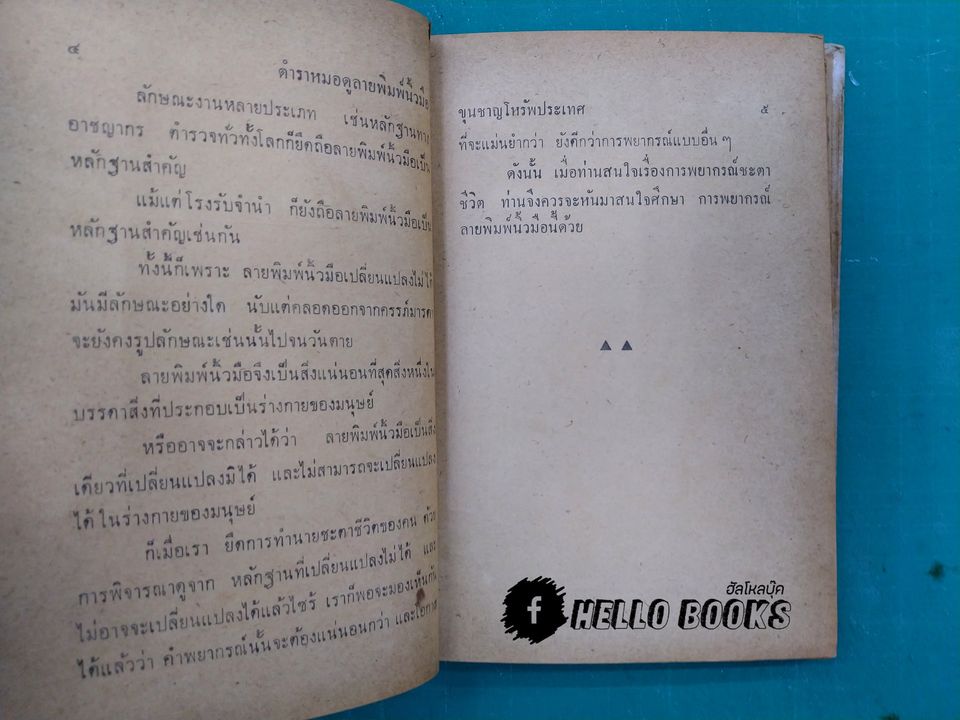 ๔
ตำราหมอดูลายพิมพ์นิ้วมือ
ลักษณะงานหลายประเภท เช่นหลักฐานทาง
อาชญากร ตำรวจทั่วทั้งโลกก็ยึดถือลายพิมพ์นิ้วมือเป็น
หลักฐานสำคัญ
แม้แต่โรงรับจำนำ ก็ยังถือลายพิมพ์นิ้วมือเป็น
หลักฐานสำคัญเช่นกัน
ทั้งนี้ก็เพราะ ลายพิมพ์นิ้วมือเปลี่ยนแปลงไม่ได้
มันมีลักษณะอย่างใด นับแต่คลอดออกจากครรภ์มารดา
จะยังคงรูปลักษณะเช่นนั้นไปจนวันตาย
ลายพิมพ์นิ้วมือจึงเป็นสิ่งแน่นอนที่สุดสิ่งหนึ่งใน
บรรดาสิ่งที่ประกอบเป็นร่างกายของมนุษย์
หรืออาจจะกล่าวได้ว่า ลายพิมพ์นิ้วมือเป็นสิ่ง
เดียวที่เปลี่ยนแปลงมิได้ และไม่สามารถจะเปลี่ยนแปลง
ได้ในร่างกายของมนุษย์
ก็เมื่อเรา ยึดการทำนายชะตาชีวิตของคน ด้วย
การพิจารณาดูจาก หลักฐานที่เปลี่ยนแปลงไม่ได้ และ
ไม่อาจจะเปลี่ยนแปลงได้แล้วไซร้ เราก็พอจะมองเห็นกัน
ได้แล้วว่า คำพยากรณ์นั้นจะต้องแน่นอนกว่า และโอกาส
ขุนชาญโหรัพประเทศ ๕
ที่จะแม่นยำกว่า ยังดีกว่าการพยากรณ์แบบอื่น ๆ
ดังนั้น เมื่อท่านสนใจเรื่องการพยากรณ์ชะตา
ชีวิต ท่านจึงควรจะหันมาสนใจศึกษา การพยากรณ์
ลายพิมพ์นิ้วมือนี้ด้วย
ฮัลโหลบุ๊ค
f HELLO BOOKS